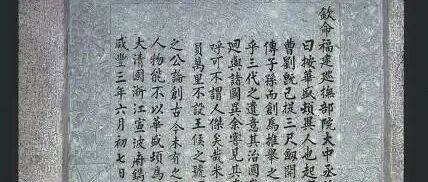 欽命福建巡撫部院大中丞
曰按華盛頓異人也起
曹劉既已提三尺劍開
傳子孫而創為推舉之
乎三代之遺意其治國
廻與諸國異余嘗見其
呼可不謂人傑矣哉米
員萬里不設王侯之號
之公論創古今未有之
人物能不以華盛頓為
大清國浙江寧波府鐫
咸豐三年六月初七日